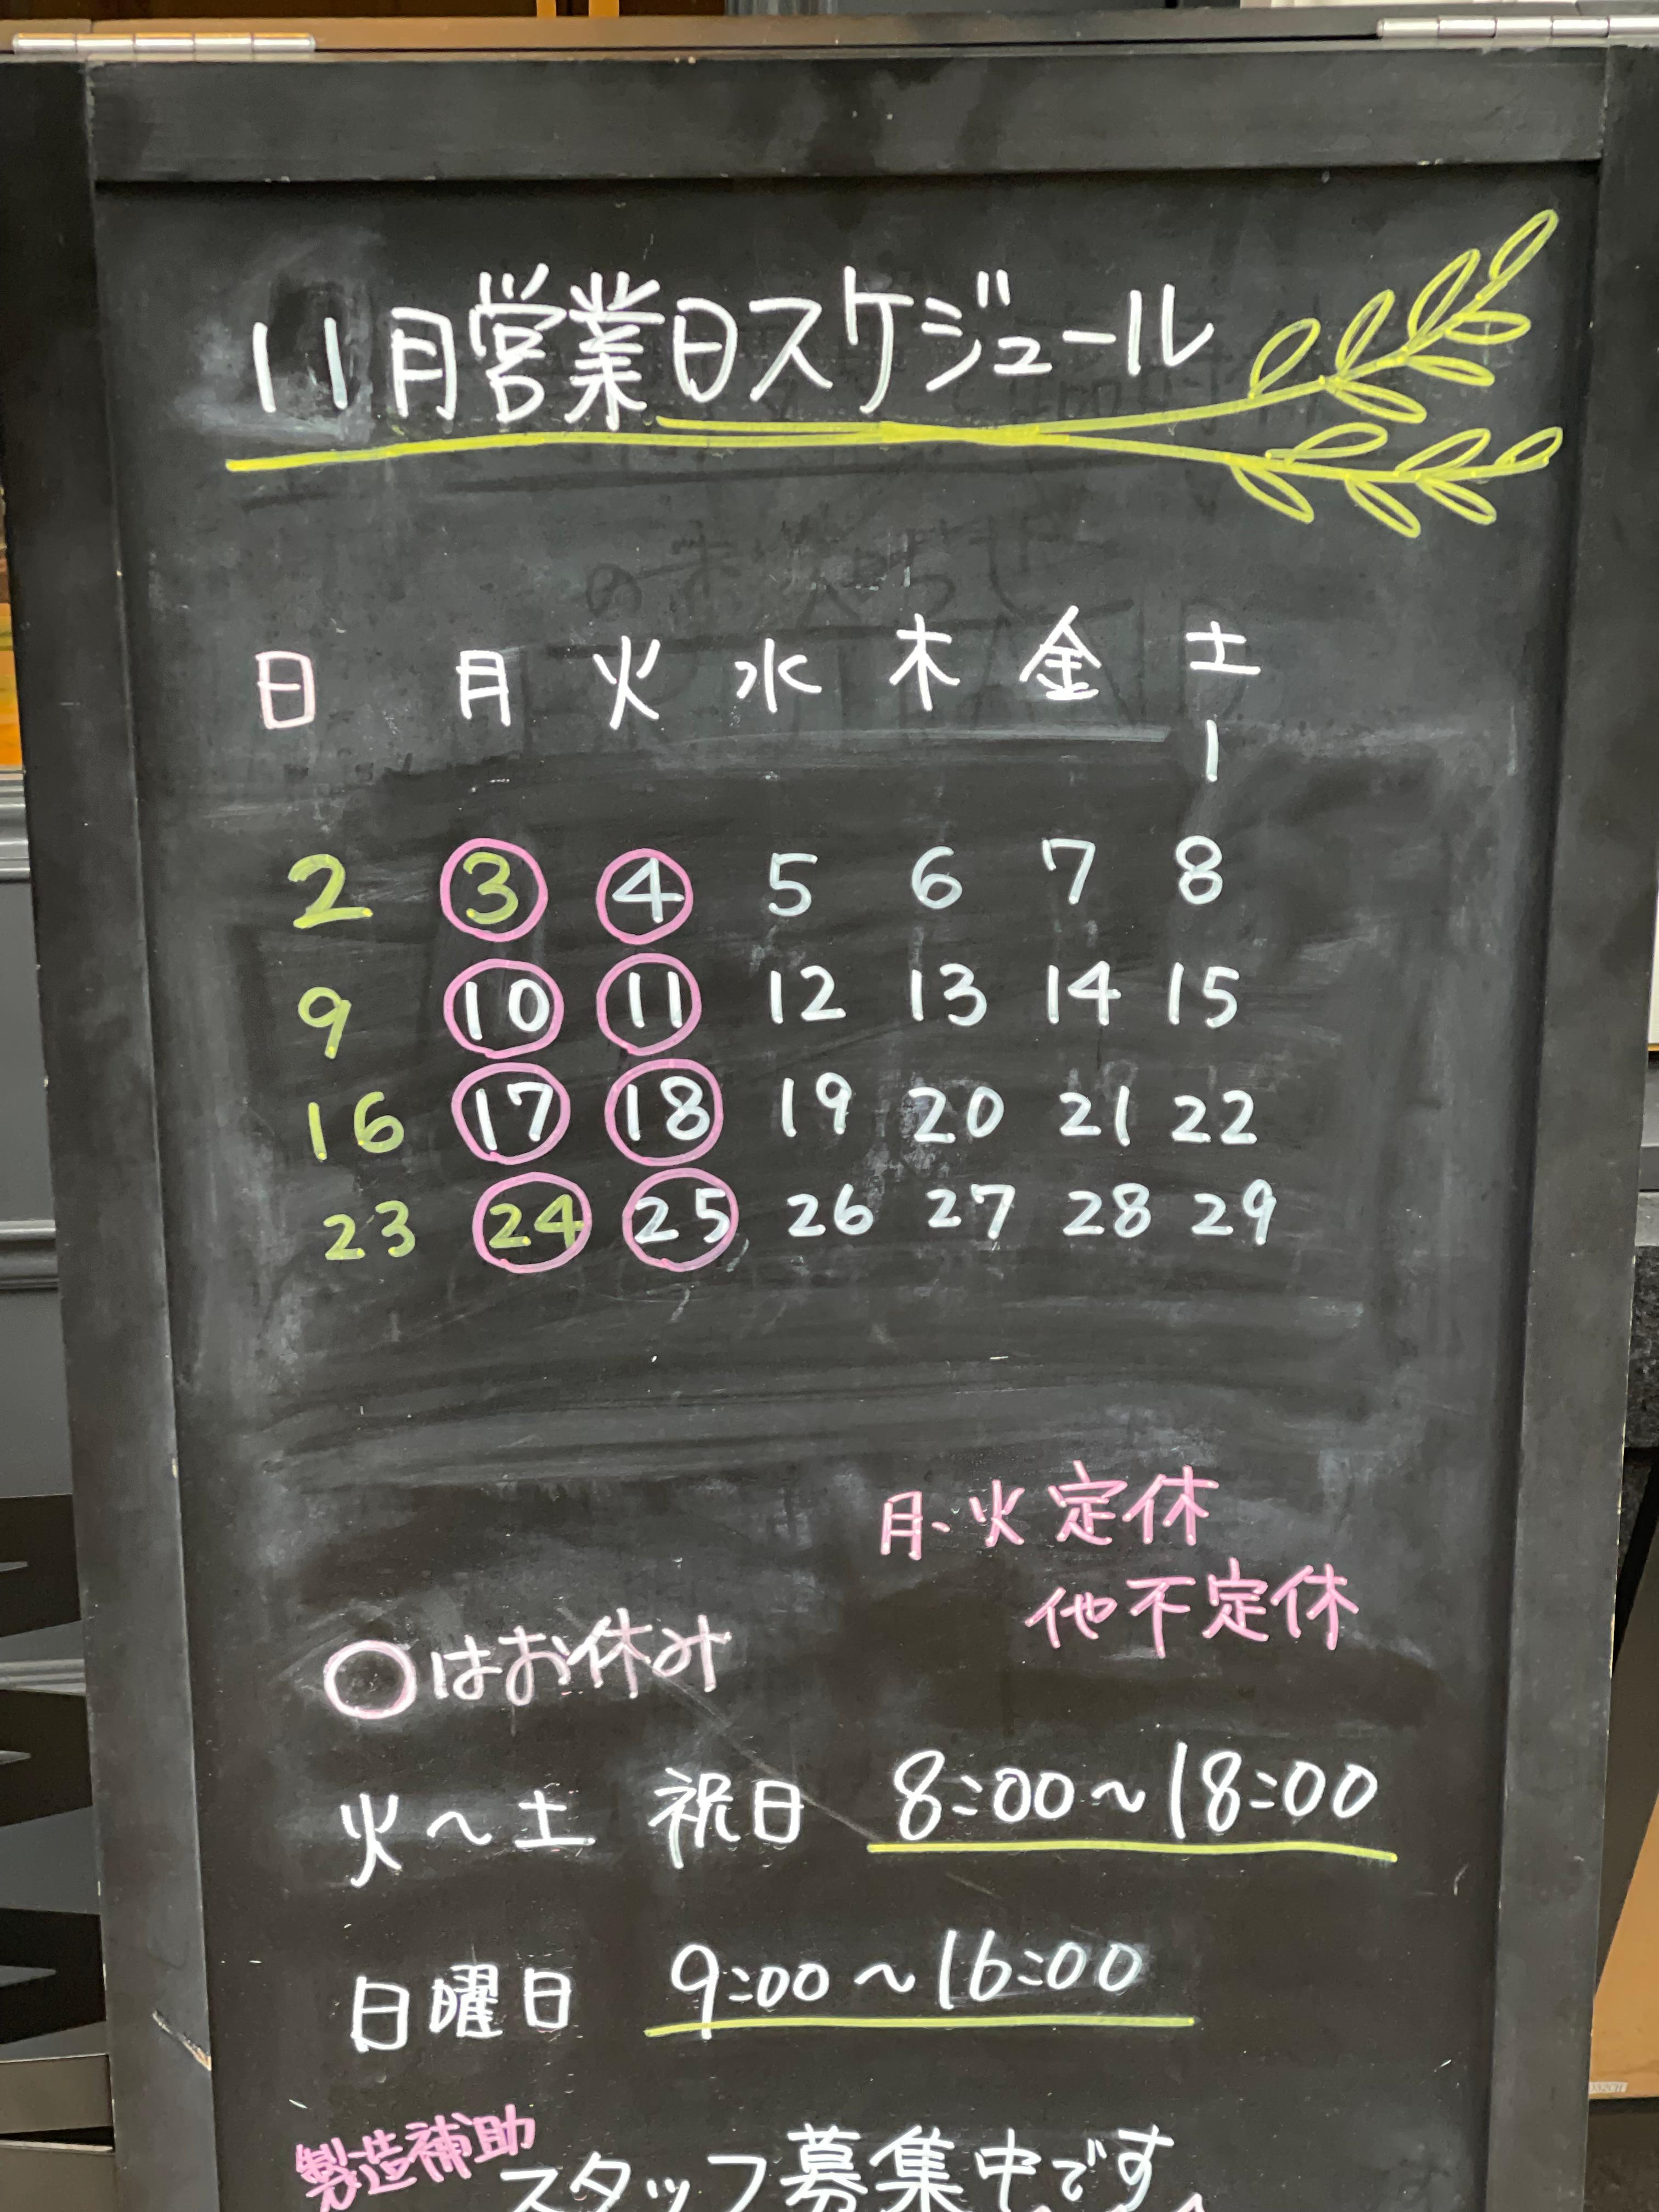 11月営業日スケジュール
日 月 火 水 木 金 土
1
2 3 4 5 6 7 8
9 10 11 12 13 14 15
16 17 18 19 20 21 22
23 24 25 26 27 28 29
月、火定休
他不定休
○はお休み
火～土 祝日 8:00～18:00
日曜日 9:00～16:00
製造補助
スタッフ募集中です